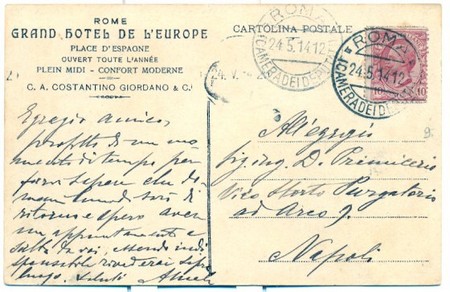 ROME
GRAND HOTEL DE L'EUROPE
PLACE D'ESPAGNE
OUVERT TOUTE L'ANNÉE
PLEIN MIDI - CONFORT MODERNE
C. A. COSTANTINO GIORDANO & C.
CARTOLINA POSTALE
ROMA
24.5.14.12
(CAMERA DEI DEPUTATI)
ROMA
24.5.14.12
(CAMERA DEI DEPUTATI)
10
Egregio amico,
profitto di un mo
mento di tempo per
farvi sapere che do
mani sarò di
ritorno e spero aver
un appuntamento
da voi, essendo indi
spensabile
luogo. Saluti
All'egregio
Sig. ing. D. Primicerio
Vico Storto Purgatorio
ad Arco 9.
Napoli